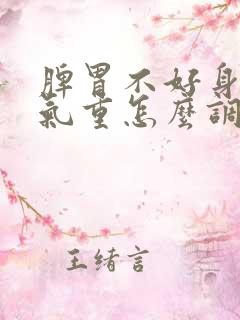 脾胃不好身
氣重怎麼調
王緒言